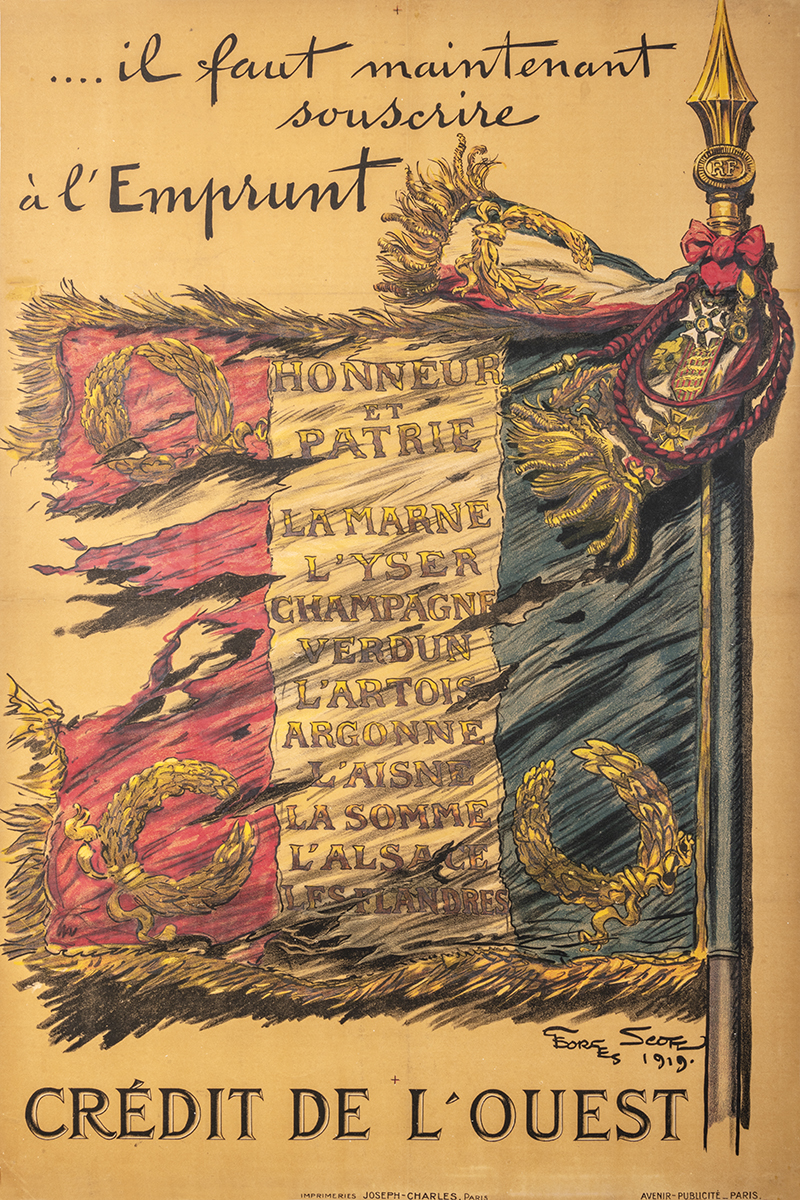 ....il faut maintenant
souscrire
à l'Emprunt
RF
HONNEUR
ET
PATRIE
LA MARNE
L'YSER
CHAMPAGNE
VERDUN
L'ARTOIS
ARGONNE
L'AISNE
LA SOMME
L'ALSACE
LES FLANDRES
GEORGES SCOTT
1919.
CRÉDIT DE L'OUEST
IMPRIMERIES JOSEPH-CHARLES, PARIS
AVENIR-PUBLICITÉ_PARIS.